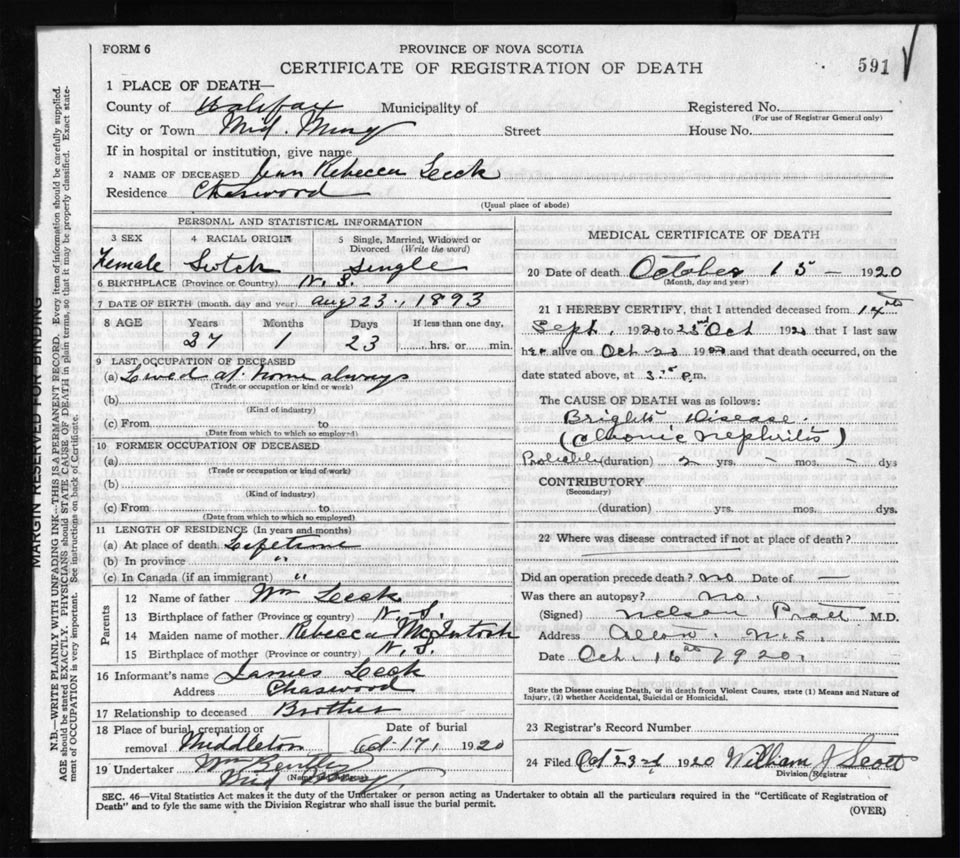 FORM 6
PROVINCE OF NOVA SCOTIA
CERTIFICATE OF REGISTRATION OF DEATH
591
1 PLACE OF DEATH—
County of Halifax Municipality of Registered No.
(For use of Registrar General only)
City or Town Mid. Musq Street House No.
If in hospital or institution, give name
2 NAME OF DECEASED Rebecca Leck
Residence Chaswood
(Usual place of abode)
PERSONAL AND STATISTICAL INFORMATION
3 SEX 4 RACIAL ORIGIN 5 Single, Married, Widowed or Divorced (Write the word)
Female Scotch Single
6 BIRTHPLACE (Province or Country) N. S.
7 DATE OF BIRTH (month, day and year) Aug 23, 1893
8 AGE Years Months Days If less than one day,
27 1 23 hrs. or min.
9 LAST OCCUPATION OF DECEASED
(a) Lived at home always
(Trade or occupation or kind of work)
(b)
(Kind of industry)
(c) From to
(Date from which to which so employed)
10 FORMER OCCUPATION OF DECEASED
(a)
(Trade or occupation or kind of work)
(b)
(Kind of industry)
(c) From to
(Date from which to which so employed)
11 LENGTH OF RESIDENCE (In years and months)
(a) At place of death Lifetime
(b) In province "
(c) In Canada (if an immigrant) "
Parents
12 Name of father Wm Leck
13 Birthplace of father (Province or country) N. S.
14 Maiden name of mother Rebecca McIntosh
15 Birthplace of mother (Province or country) N. S.
16 Informant's name James Leck
Address Chaswood
17 Relationship to deceased Brother
18 Place of burial, cremation or removal Middleton Date of burial Oct. 17, 1920
19 Undertaker Wm
(Name and address) Mid
MEDICAL CERTIFICATE OF DEATH
20 Date of death October 15 — 1920
(Month, day and year)
21 I HEREBY CERTIFY, that I attended deceased from 14th
Sept. 1920 to Oct 1920 that I last saw
her alive on Oct 19 and that death occurred, on the
date stated above, at 3 P.m.
The CAUSE OF DEATH was as follows:
Brights Disease.
(Chronic Nephritis)
Probably (duration) 2 yrs. - mos. - dys
CONTRIBUTORY
(Secondary)
(duration) yrs. mos. dys.
22 Where was disease contracted if not at place of death?
Did an operation precede death? no Date of —
Was there an autopsy? no.
(Signed) Nelson Pratt M.D.
Address N.S.
Date Oct. 16th 1920.
State the Disease causing Death, or in death from Violent Causes, state (1) Means and Nature of
Injury, (2) whether Accidental, Suicidal or Homicidal.
23 Registrar's Record Number
24 Filed Oct 23rd 1920 William J Scott
Division Registrar
SEC. 46—Vital Statistics Act makes it the duty of the Undertaker or person acting as Undertaker to obtain all the particulars required in the "Certificate of Registration of
Death" and to fyle the same with the Division Registrar who shall issue the burial permit.
(OVER)
MARGIN RESERVED FOR BINDING
N.B.—WRITE PLAINLY WITH UNFADING INK—THIS IS A PERMANENT RECORD. Every item of information should be carefully supplied.
AGE should be stated EXACTLY. PHYSICIANS should STATE CAUSE OF DEATH in plain terms, so that it may be properly classified. Exact state-
ment of OCCUPATION is very important. See instructions on back of Certificate.